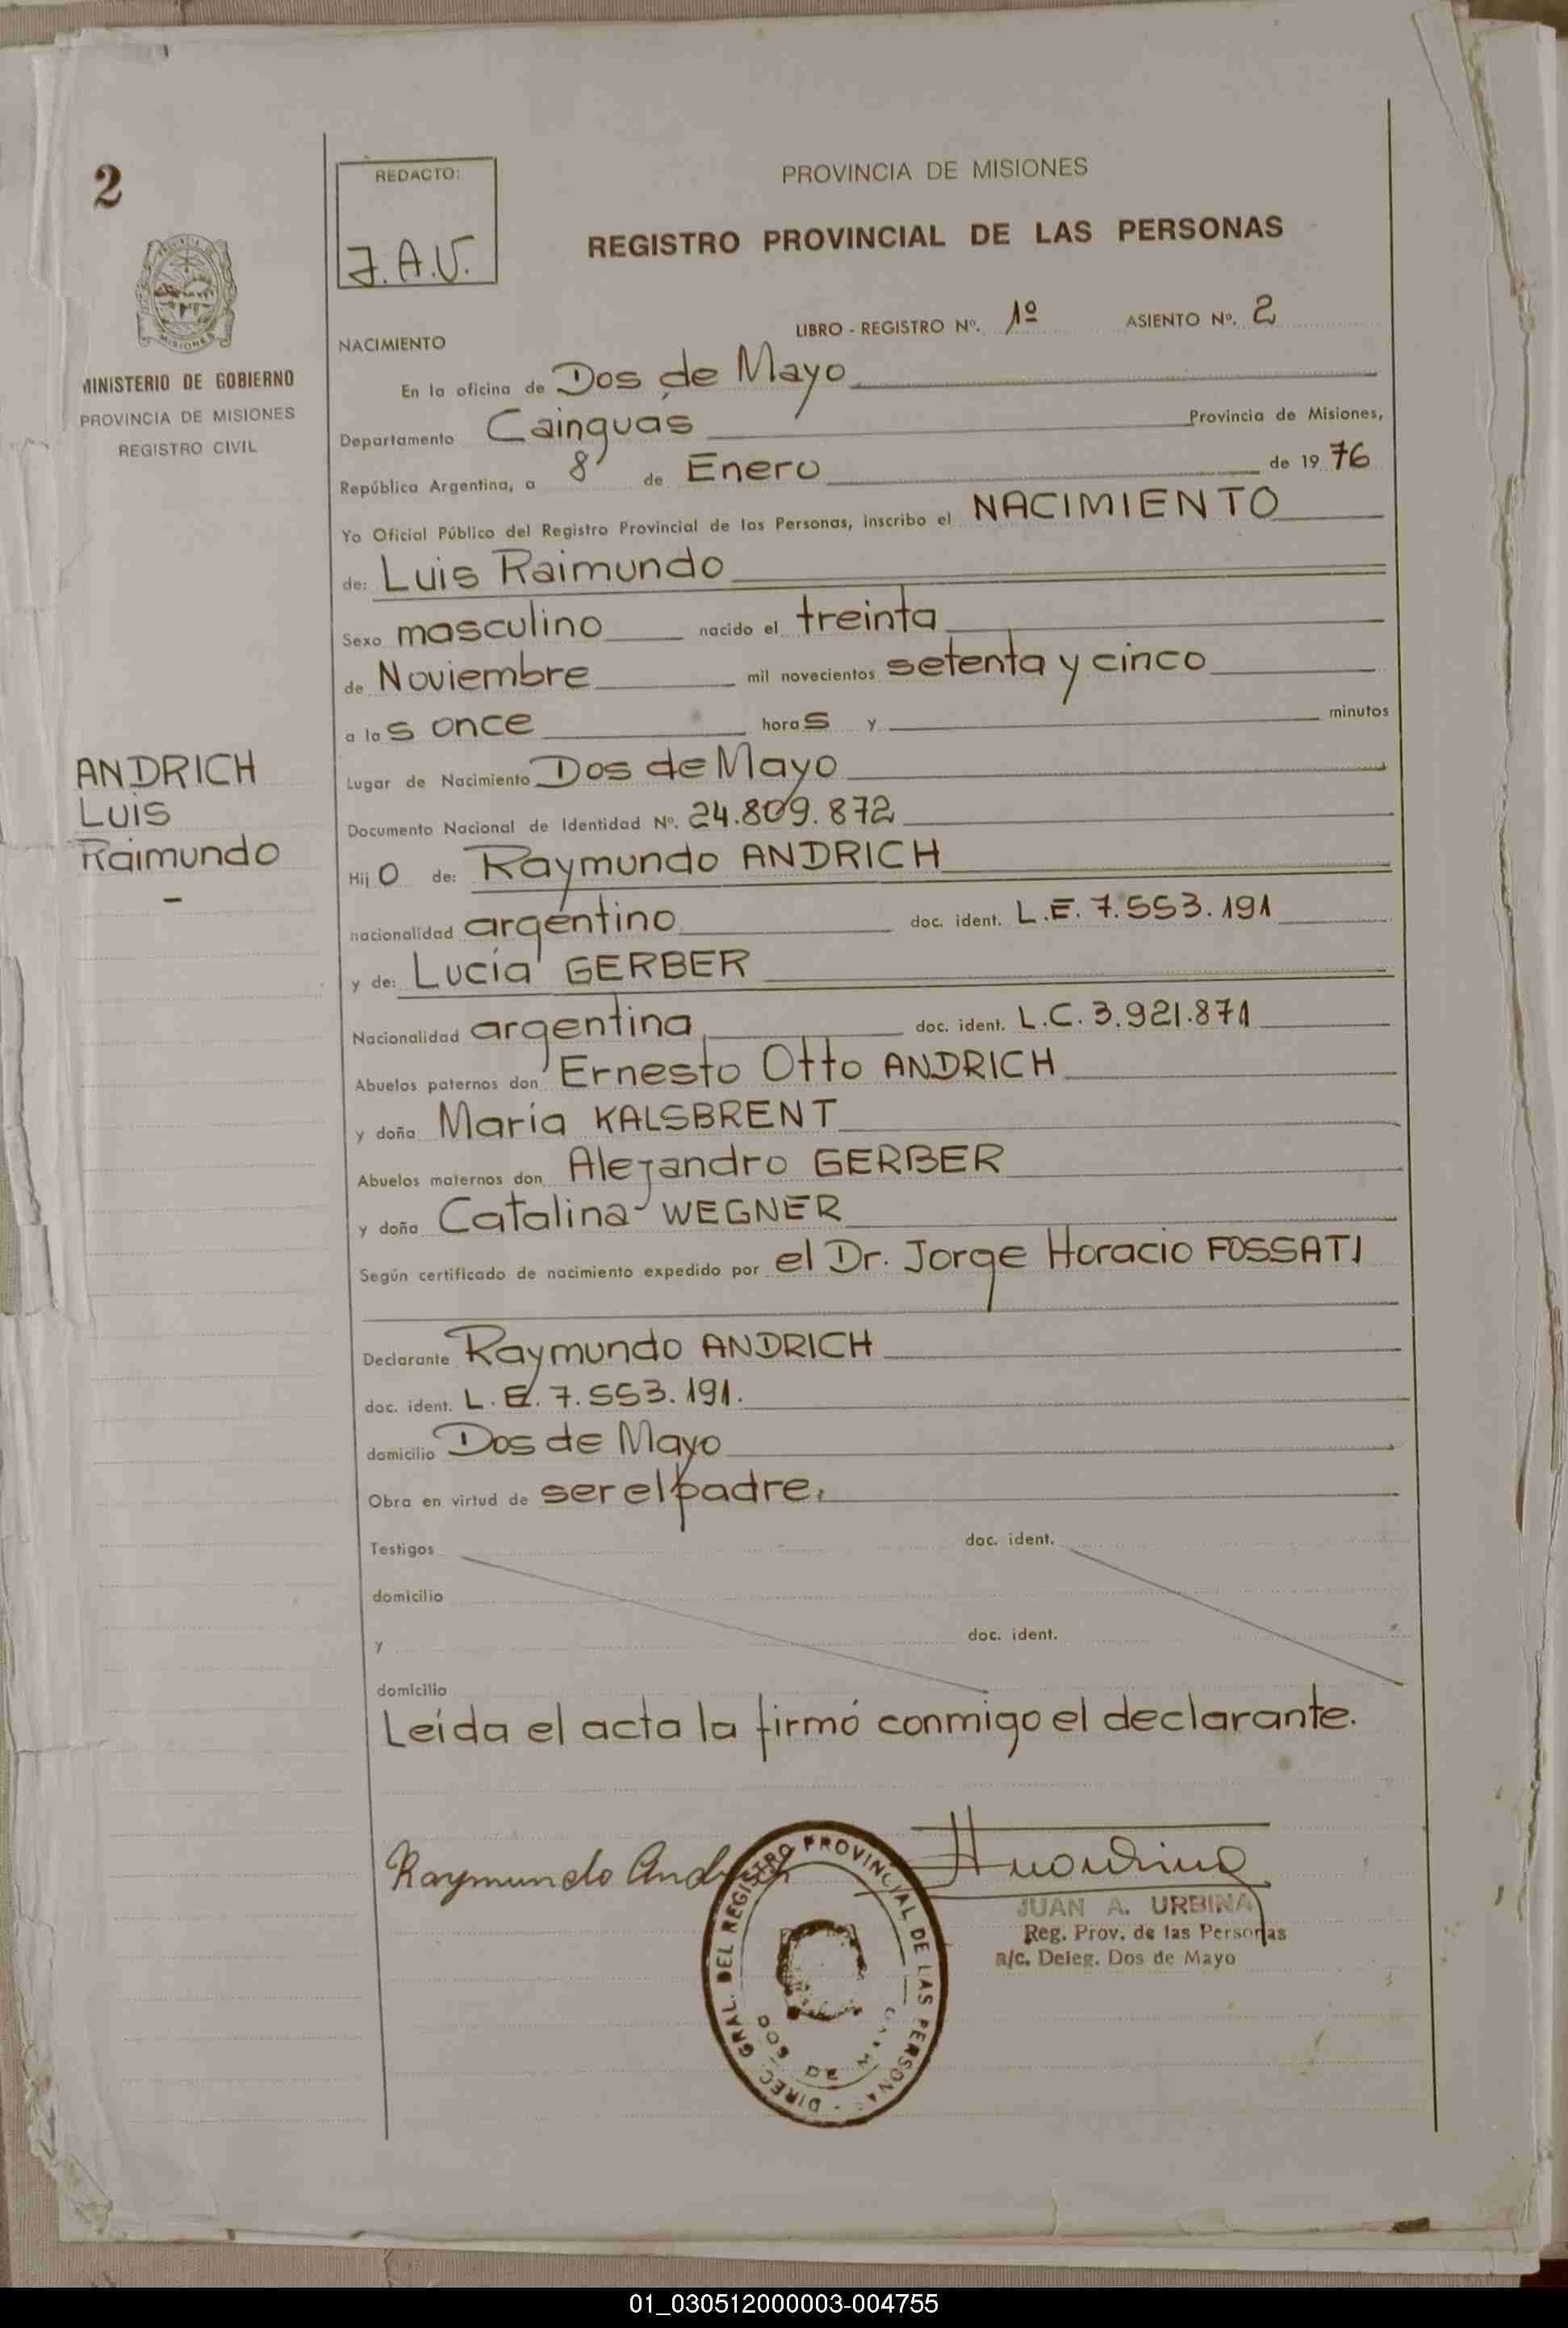 2
REDACTO:
J.A.U.
PROVINCIA DE MISIONES
REGISTRO PROVINCIAL DE LAS PERSONAS
MINISTERIO DE GOBIERNO
PROVINCIA DE MISIONES
REGISTRO CIVIL
ANDRICH
Luis
Raimundo
-
NACIMIENTO
LIBRO - REGISTRO Nº. 1º ASIENTO Nº. 2
En la oficina de Dos de Mayo
Departamento Cainguás Provincia de Misiones,
República Argentina, a 8 de Enero de 19 76
Yo Oficial Público del Registro Provincial de las Personas, inscribo el NACIMIENTO
de: Luis Raimundo
Sexo masculino nacido el treinta
de Noviembre mil novecientos setenta y cinco
a las once horas y minutos
Lugar de Nacimiento Dos de Mayo
Documento Nacional de Identidad Nº. 24.809.872
Hijo de: Raymundo ANDRICH
nacionalidad argentino doc. ident. L.E. 7.553.191
y de: Lucía GERBER
Nacionalidad argentina doc. ident. L.C. 3.921.871
Abuelos paternos don Ernesto Otto ANDRICH
y doña María KALSBRENT
Abuelos maternos don Alejandro GERBER
y doña Catalina WEGNER
Según certificado de nacimiento expedido por el Dr. Jorge Horacio FOSSATI
Declarante Raymundo ANDRICH
doc. ident. L.E. 7.553.191.
domicilio Dos de Mayo
Obra en virtud de ser el padre.
Testigos doc. ident.
domicilio
y doc. ident.
domicilio
Leída el acta la firmó conmigo el declarante.
Raymundo Andrich
DIREC. GRAL. DEL REGISTRO PROVINCIAL DE LAS PERSONAS
DOS DE MAYO
JUAN A. URBINA
Reg. Prov. de las Personas
a/c. Deleg. Dos de Mayo
01_030512000003-004755